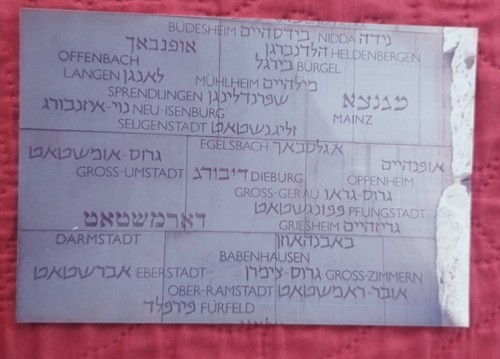 BÜDESHEIM בידסהיים NIDDA נידה
אופנבאך הלדנברגן HELDENBERGEN
OFFENBACH בירגל BÜRGEL
LANGEN לאנגן MÜHLHEIM מילהיים
SPRENDLINGEN שפרנדלינגן מגנצא
נוי-איזנבורג NEU-ISENBURG MAINZ
SELIGENSTADT זליגנשטאט
EGELSBACH אגלסבאך
גרוס-אומשטאט אופנהיים
GROSS-UMSTADT דיבורג DIEBURG OPPENHEIM
GROSS-GERAU גרוס-גראו
פפונגשטאט PFUNGSTADT
דארמשטאט GRIESHEIM גריזהיים
DARMSTADT באבנהאוזן
BABENHAUSEN
אברשטאט EBERSTADT גרוס-צימרן GROSS-ZIMMERN
OBER-RAMSTADT אובר-ראמשטאט
פירפלד FÜRFELD